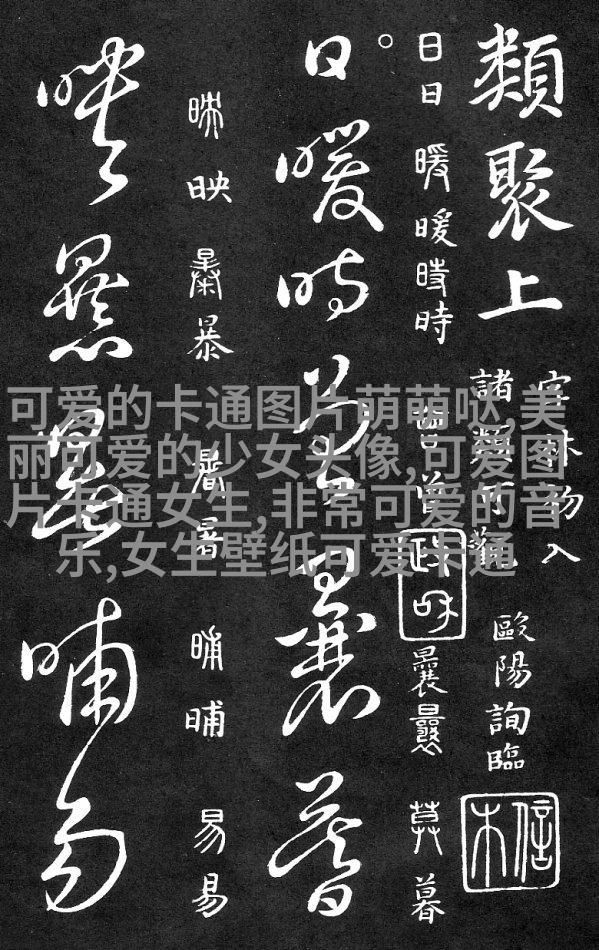 類聚上
諸類可觀
歐陽詢臨
信本
日日 暖暖時時 曾 政和 暮
日暖時曾曩暮
映 暴 暑 晡晡 易易
映暴暑晡易
可爱的卡通图片萌萌哒,美
丽可爱的少女头像,可爱图
片卡通女生,非常可爱的音
乐,女生壁纸可爱卡通